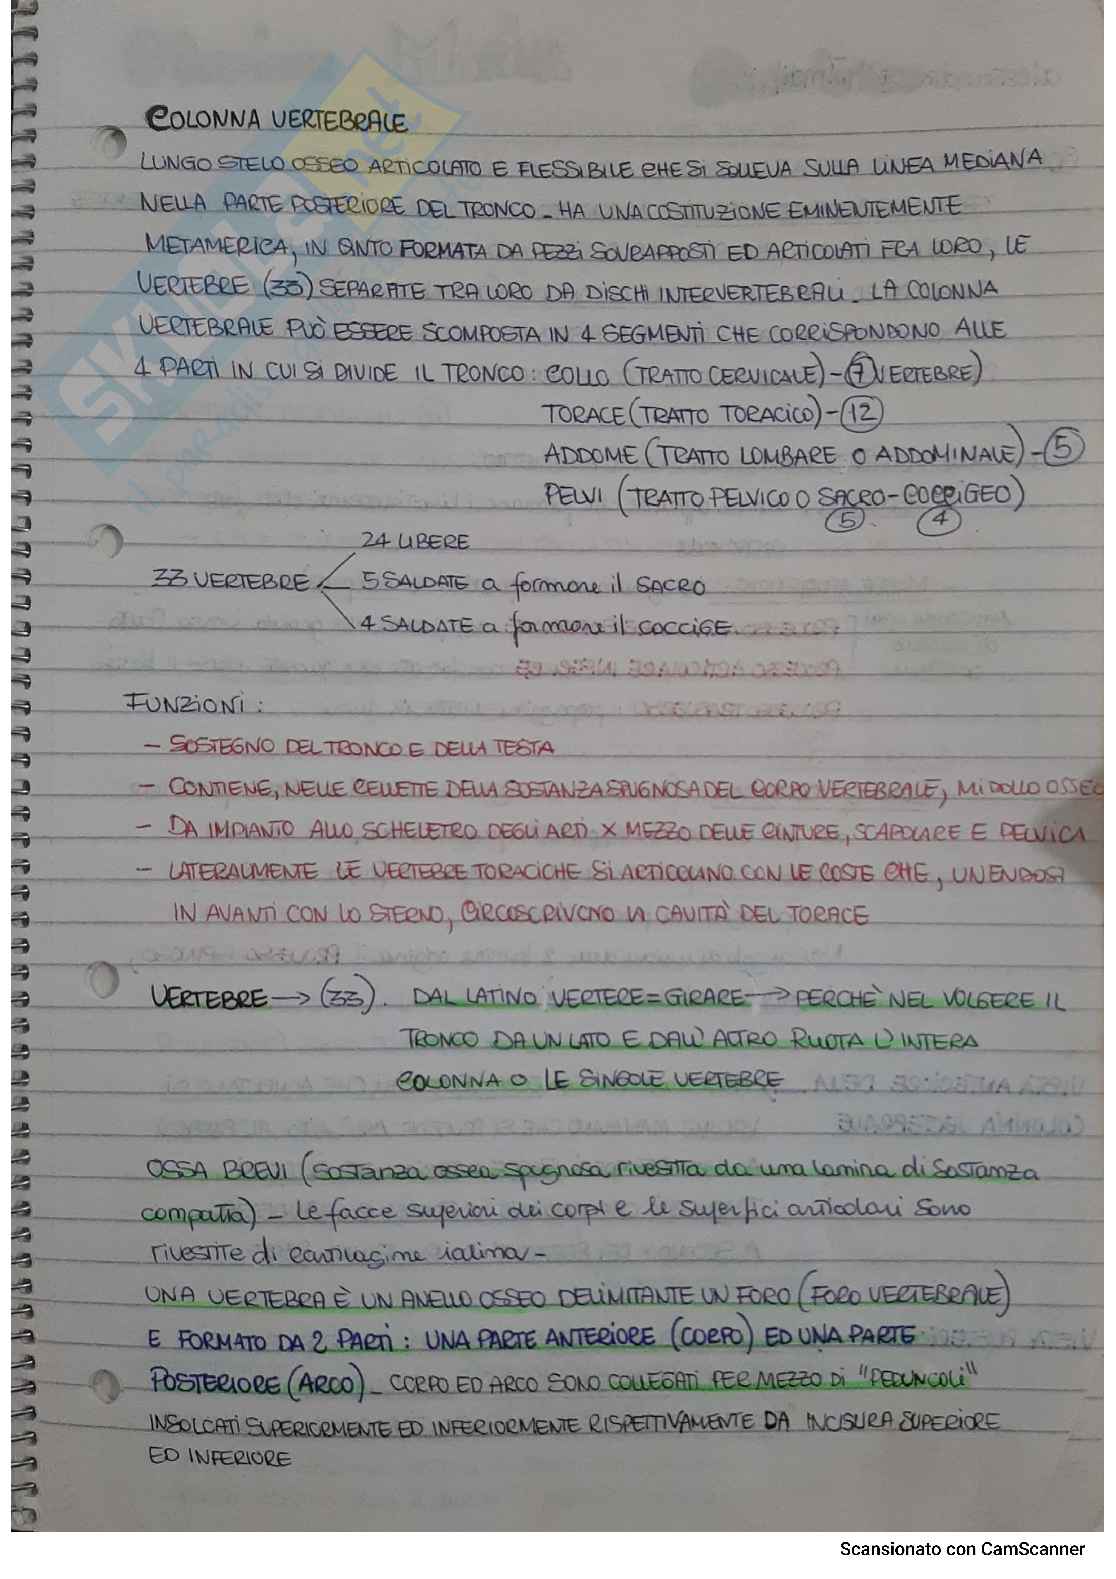 COLONNA VERTEBRALE
LUNGO STELO OSSEO ARTICOLATO E FLESSIBILE CHE SI SOLLEVA SULLA LINEA MEDIANA
NELLA PARTE POSTERIORE DEL TRONCO - HA UNA COSTITUZIONE EMINENTEMENTE
METAMERICA, IN QNTO FORMATA DA PEZZI SOVRAPPOSTI ED ARTICOLATI FRA LORO, LE
VERTEBRE (33) SEPARATE TRA LORO DA DISCHI INTERVERTEBRALI. LA COLONNA
VERTEBRALE PUÒ ESSERE SCOMPOSTA IN 4 SEGMENTI CHE CORRISPONDONO ALLE
4 PARTI IN CUI SI DIVIDE IL TRONCO: COLLO (TRATTO CERVICALE) - 7 VERTEBRE)
TORACE (TRATTO TORACICO) - 12
ADDOME (TRATTO LOMBARE O ADDOMINALE) - 5
PELVI (TRATTO PELVICO O SACRO-COCCIGEO)
5 4
24 LIBERE
33 VERTEBRE 5 SALDATE a formare il SACRO
4 SALDATE a formare il COCCIGE
FUNZIONI:
- SOSTEGNO DEL TRONCO E DELLA TESTA
- CONTIENE, NELLE CELLETTE DELLA SOSTANZA SPUGNOSA DEL CORPO VERTEBRALE, MIDOLLO OSSEO
- DA IMPIANTO ALLO SCHELETRO DEGLI ARTI X MEZZO DELLE CINTURE, SCAPOLARE E PELVICA
- LATERALMENTE LE VERTEBRE TORACICHE SI ARTICOLANO CON LE COSTE CHE, UNENDOSI
IN AVANTI CON LO STERNO, CIRCOSCRIVONO LA CAVITÀ DEL TORACE
VERTEBRE → (33). DAL LATINO VERTERE = GIRARE → PERCHÈ NEL VOLGERE IL
TRONCO DA UN LATO E DALL'ALTRO RUOTA L'INTERA
COLONNA O LE SINGOLE VERTEBRE
OSSA BREVI (sostanza ossea spugnosa rivestita da una lamina di sostanza
compatta) - le facce superiori dei corpi e le superfici articolari sono
rivestite di cartilagine ialina -
UNA VERTEBRA È UN ANELLO OSSEO DELIMITANTE UN FORO (FORO VERTEBRALE)
E FORMATO DA 2 PARTI: UNA PARTE ANTERIORE (CORPO) ED UNA PARTE
POSTERIORE (ARCO) - CORPO ED ARCO SONO COLLEGATI PER MEZZO DI "PEDUNCOLI"
INSOLCATI SUPERIORMENTE ED INFERIORMENTE RISPETTIVAMENTE DA INCISURA SUPERIORE
ED INFERIORE
Scansionato con CamScanner